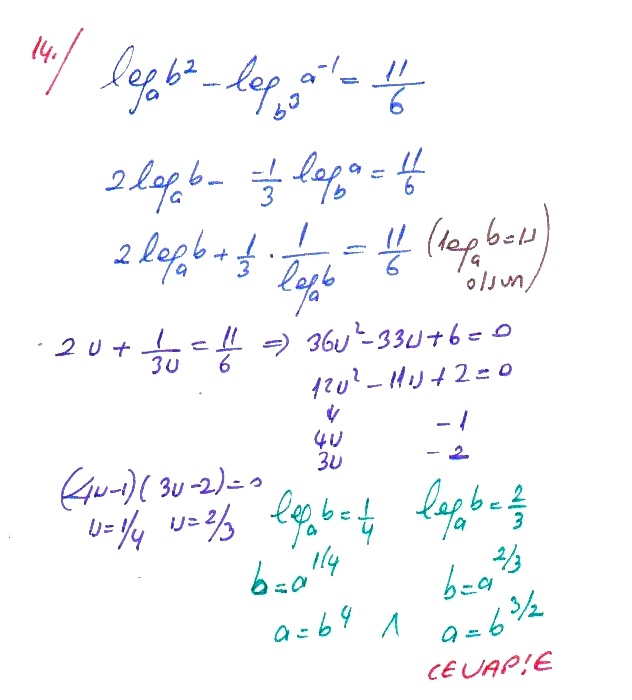 14./ log_a b² - log_{b³} a⁻¹ = 11/6
2 log_a b - -1/3 log_b a = 11/6
2 log_a b + 1/3 · 1/log_a b = 11/6 (log_a b = u olsun)
2u + 1/3u = 11/6 ⇒ 36u² - 33u + 6 = 0
12u² - 11u + 2 = 0
4u -1
3u -2
(4u-1)(3u-2)=0
u=1/4 u=2/3
log_a b = 1/4 log_a b = 2/3
b = a^{1/4} b = a^{2/3}
a = b⁴ ∧ a = b^{3/2}
CEVAP!E